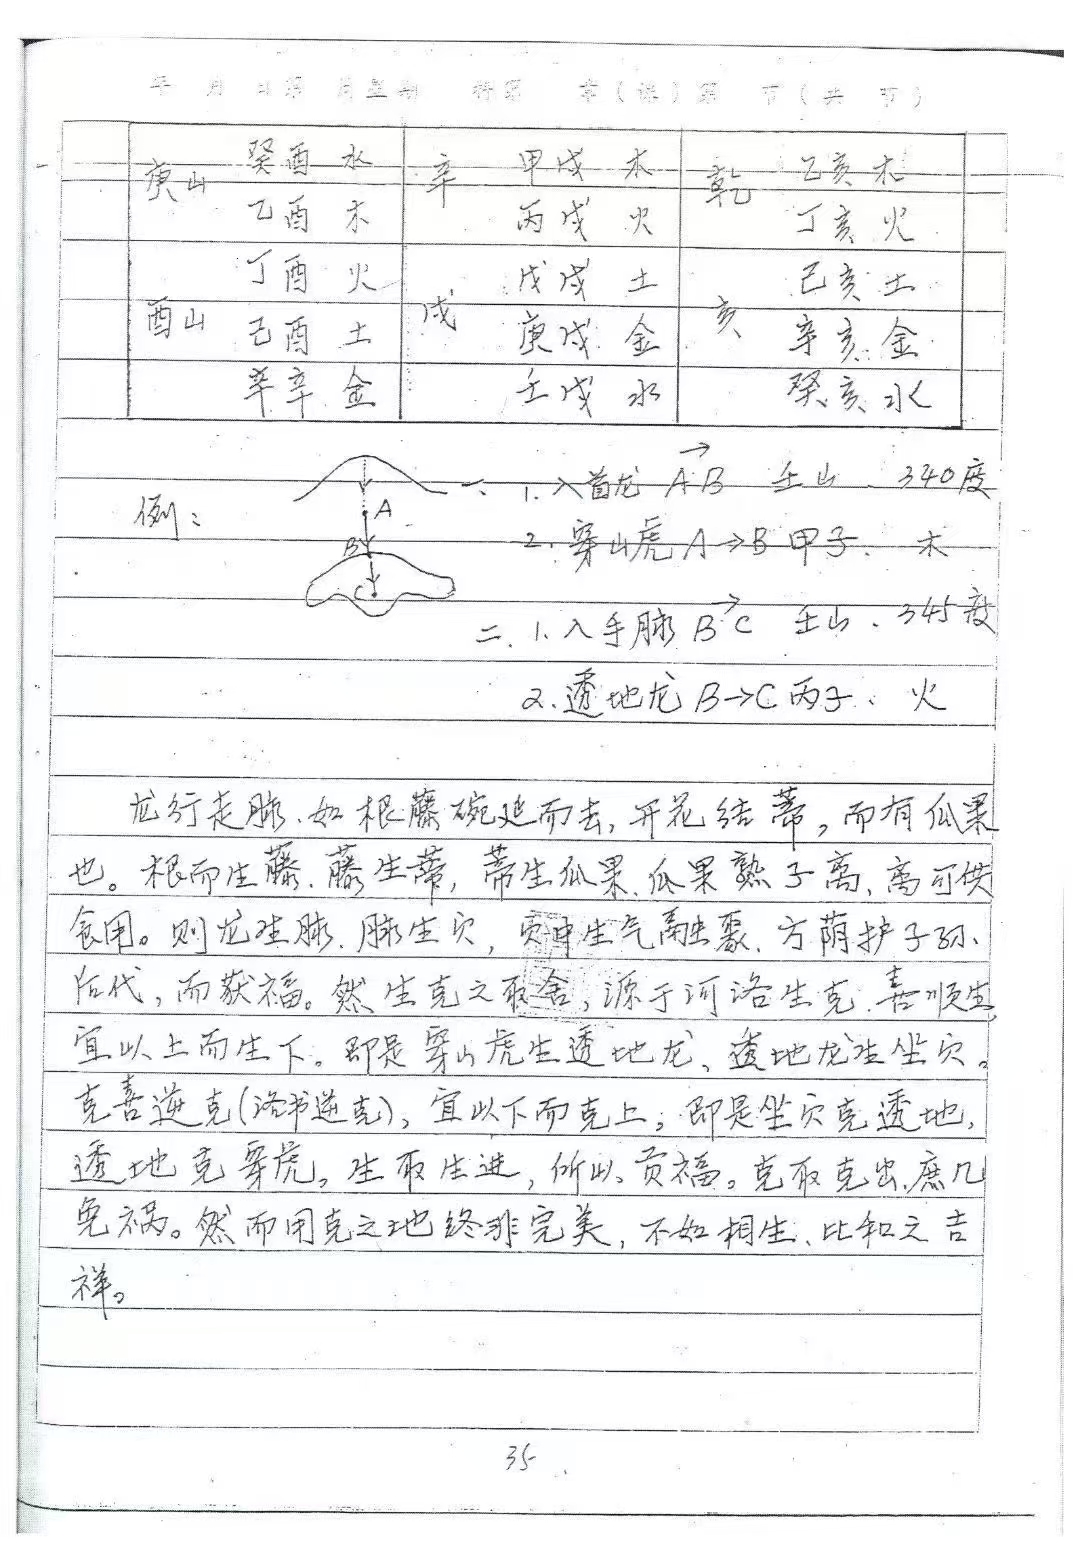 年 月 日第 周星期 特第 章(课)第 节(共 节)
庚山 癸酉 水 辛 甲戌 木 乾 乙亥 木
乙酉 木 丙戌 火 丁亥 火
丁酉 火 戊戌 土 己亥 土
酉山 己酉 土 戌 庚戌 金 亥 辛亥 金
辛辛 金 壬戌 水 癸亥 水
例: A B C
一、1.入首龙 AB 壬山、340度
2.穿山虎 A→B 甲子、木
二.1.入手脉 BC 壬山、345度
2.透地龙 B→C 丙子、火
龙行走脉、如根藤碗延而去,开花结蒂,而有瓜果
也。根而生藤、藤生蒂,蒂生瓜果、瓜果熟子离、离可供
食用。则龙生脉、脉生穴,穴中生气融聚、方荫护子孙、
后代,而获福。然生克之取舍,源于河洛生克.喜顺生,
宜以上而生下。即是穿山虎生透地龙、透地龙生坐穴。
克喜逆克(洛书逆克),宜以下而克上,即是坐穴克透地,
透地克穿虎。生取生进,所以贡福。克取克出、庶几
免祸。然而用克之地终非完美,不如相生、比和之吉
祥。
35